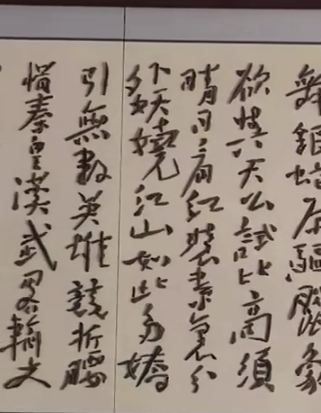 舞銀蛇原驅臘象
欲與天公試比高須
晴日看紅裝素裹分
外妖嬈江山如此多嬌
引無數英雄競折腰
惜秦皇漢武略輸文